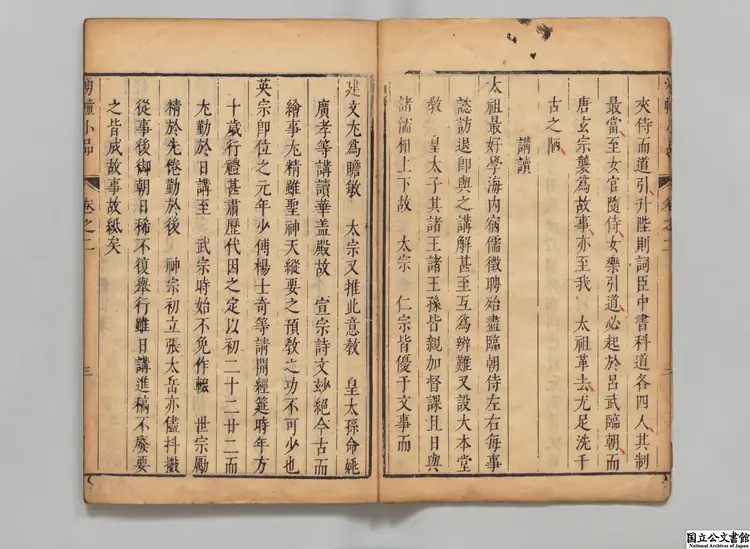 夾侍而道引升陛則詞臣中書科道各四人其制
最當至女官隨侍女樂引道必起於呂武臨朝而
唐玄宗襲爲故事亦至我　太祖革去尤足洗千
古之陋
講讀
太祖最好學海内宿儒徵聘殆盡臨朝侍左右每事
諮訪退卽與之講解甚至互爲辨難又設大本堂
敎　皇太子其諸王諸王孫皆親加督課且日與
諸儒相上下故　太宗　仁宗皆優于文事而
建文尤爲贍敏　太宗又推此意敎　皇太孫命姚
廣孝等講讀華盖殿故　宣宗詩文妙絕今古而
繪事尤精雖聖神天縱要之預敎之功不可少也
英宗卽位之元年少傅楊士奇等請開經筵時年方
十歲行禮甚肅歷代因之定以初二十二廿二而
尤勤於日講至　武宗時始不免作輟　世宗勵
精於先倦勤於後　神宗初立張太岳亦儘抖擻
從事後御朝日稀不復舉行雖日講進稿不廢要
之皆成故事故紙矣
湧幢小品
卷之二
三
国立公文書館
National Archives of Japan